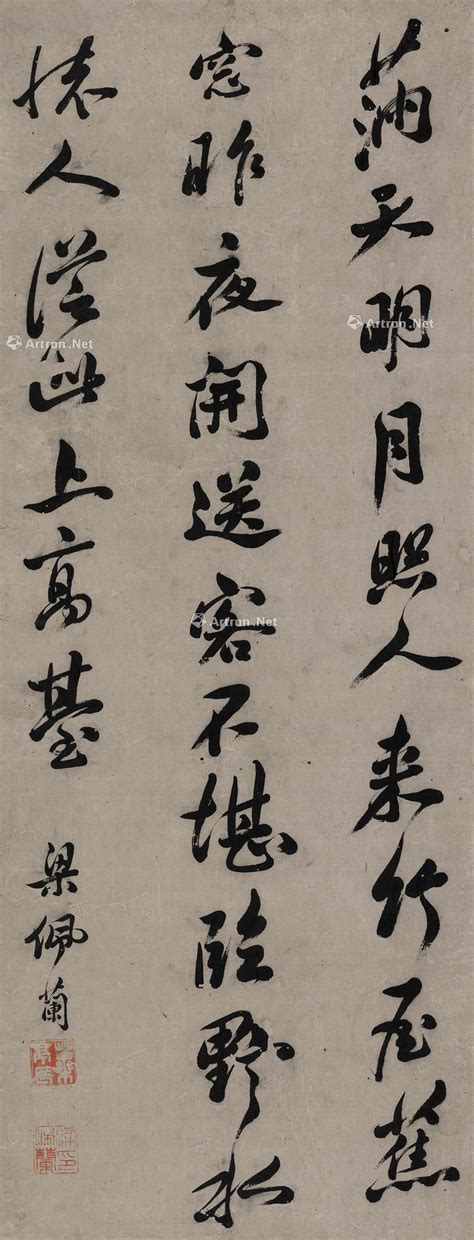 滿天明月照人来竹屋蕉
窓昨夜開送客不堪臨野水
懷人從此上高臺
梁佩蘭
Artron.Net
Artron.Net
Artron.Net